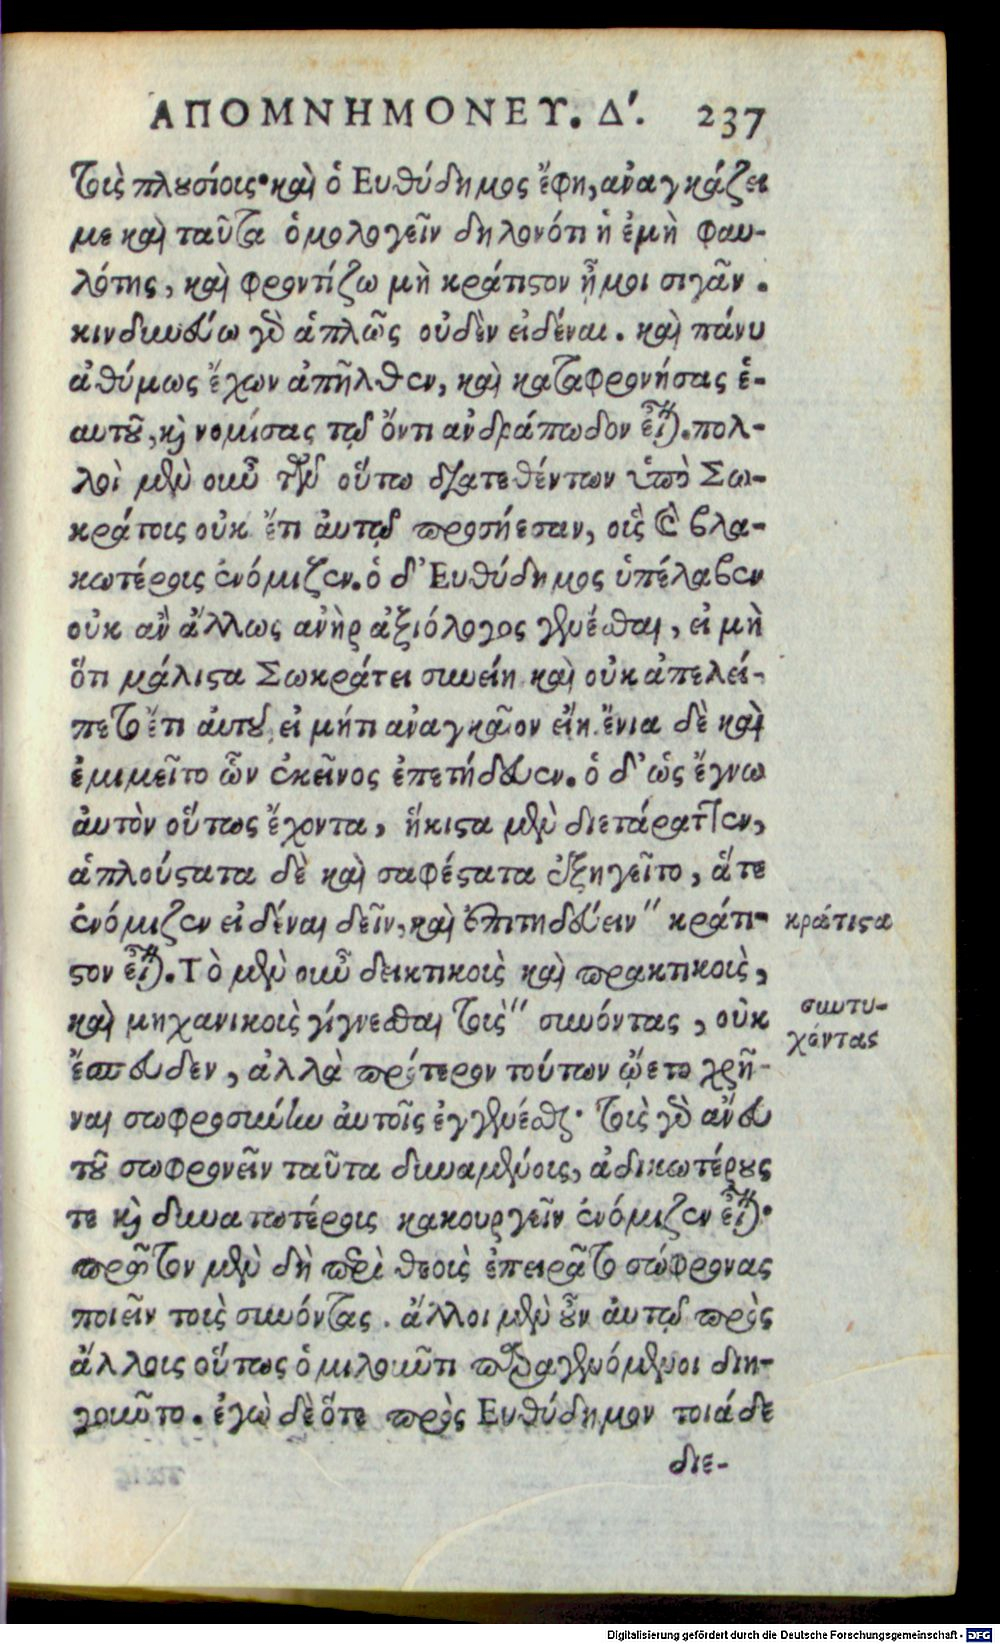 ΑΠΟΜΝΗΜΟΝΕΥ. Δ'. 237
τοὶς πλουσίοις· καὶ ὁ Ευθύδημος ἔφη, αναγκάζει
με καὶ ταῦτα ὁμολογεῖν δηλονότι ἡ ἐμὴ φαυ-
λότης, καὶ φροντίζω μὴ κράτιστον ᾖ μοι σιγᾶν.
κινδυνεύω γὰρ ἁπλῶς οὐδὲν εἰδέναι. καὶ πάνυ
ἀθύμως ἔχων ἀπῆλθεν, καὶ καταφρονήσας ἑ-
αυτοῦ, καὶ νομίσας τῷ ὄντι ανδράποδον εἶναι. πολ-
λοὶ μὲν οὖν τῶν οὕτω διατεθέντων ὑπὸ Σω-
κράτοις οὐκ ἔτι ἀυτῷ προσήεσαν, οἷς καὶ βλα-
κωτέροις ἐνόμιζεν. ὁ δ' Ευθύδημος ὑπέλαβεν
οὐκ αν ἄλλως ανὴρ ἀξιόλογος γενέσθαι, εἰ μὴ
ὅτι μάλιστα Σωκράτει συνείη καὶ οὐκ ἀπελεί-
πετο ἔτι ἀυτοῦ, εἰ μήτι αναγκαῖον εἴη. ἔνια δὲ καὶ
ἐμιμεῖτο ὧν ἐκεῖνος ἐπετήδευεν. ὁ δ' ὡς ἔγνω
ἀυτὸν οὕτως ἔχοντα, ἥκιστα μὲν διετάραττεν,
ἁπλούστατα δὲ καὶ σαφέστατα ἐξηγεῖτο, ἅτε
ἐνόμιζεν εἰδέναι δεῖν, καὶ ἐπιτηδεύειν" κράτι-
κράτιστα
στον εἶναι. Τὸ μὲν οὖν δεικτικοὶς καὶ πρακτικοὶς,
καὶ μηχανικοὶς γίγνεσθαι τοὶς" συνόντας, οὐκ
συντυ-
χόντας
ἔσπευδεν, ἀλλὰ πρότερον τούτων ᾤετο χρῆ-
ναι σωφροσύνην ἀυτοῖς ἐγγενέσθαι· τοὶς γὰρ ανευ
τοῦ σωφρονεῖν ταῦτα δυναμένοις, ἀδικωτέρους
τε καὶ δυνατωτέροις κακουργεῖν ἐνόμιζεν εἶναι·
πρῶτον μὲν δὴ περὶ θεοὶς ἐπειρᾶτο σώφρονας
ποιεῖν τοὶς συνόντας. ἄλλοι μὲν οὖν ἀυτῷ πρὸς
ἄλλοις οὕτως ὁμιλοῦντι παραγενόμενοι διη-
γοῦντο. ἐγὼ δὲ ὅτε πρὸς Ευθύδημον τοιάδε
διε-
Digitalisierung gefördert durch die Deutsche Forschungsgemeinschaft - DFG